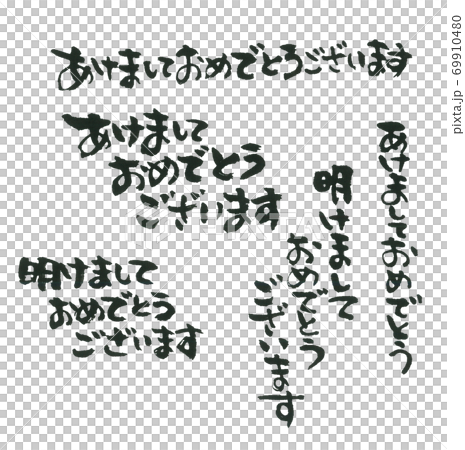 あけましておめでとうございます
あけまして
おめでとう
ございます
あけましておめでとう
明けまして
おめでとう
ございます
明けまして
おめでとう
ございます
pixta.jp - 69910480